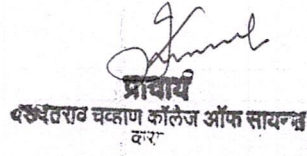 प्राचार्य
यशवंतराव चव्हाण कॉलेज ऑफ सायन्स